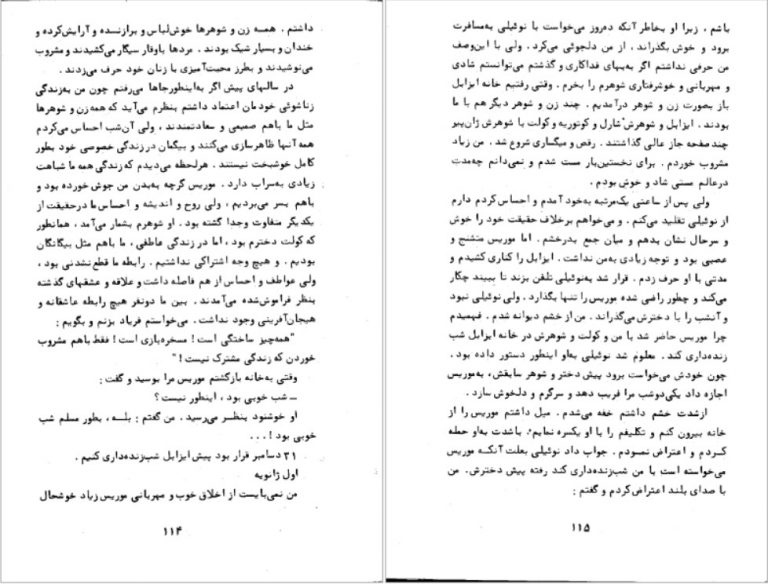 داشتم . همه زن و شوهرها خوش‌لباس و برازنده و آرایش‌کرده و
خندان و بسیار شیک بودند . مردها باوقار سیگار می‌کشیدند و مشروب
می‌نوشیدند و بطرز محبت‌آمیزی با زنان خود حرف می‌زدند .
در سالهای پیش اگر به‌اینطورجاها می‌رفتم چون من به‌زندگی
زناشوئی خودمان اعتماد داشتم بنظرم می‌آید که همه‌زن و شوهرها
مثل ما باهم صمیمی و سعادتمندند ، ولی آن‌شب احساس می‌کردم
همه آنها ظاهرسازی می‌کنند و بیگمان درزندگی خصوصی خود بطور
کامل خوشبخت نیستند . هرلحظه می‌دیدم که‌زندگی همه ما شباهت
زیادی به‌سراب دارد . موریس گرچه به‌بدن من جوش خورده بود و
باهم بسر می‌بردیم ، ولی روح و اندیشه و احساس ما درحقیقت از
یکدیگر متفاوت وجدا گشته بود . او شوهرم بشمار می‌آمد ، همانطور
که کولت دخترم بود ، اما در زندگی عاطفی ، ما باهم مثل بیگانگان
بودیم . و هیچ وجه اشتراکی نداشتیم . رابطه ما قطع‌نشدنی بود ،
ولی عواطف و احساس از هم فاصله داشت و علاقه و عشقهای گذشته
بنظر فراموش‌شده می‌آمدند . بین ما دونفر هیچ رابطه عاشقانه و
هیجان‌آفرینی وجود نداشت . می‌خواستم فریاد بزنم و بگویم :
"همه‌چیز ساختگی است ! مسخره‌بازی است ! فقط باهم مشروب
خوردن که زندگی مشترک نیست !"
وقتی به‌خانه بازگشتم موریس مرا بوسید و گفت :
ــ شب خوبی بود ، اینطور نیست ؟
او خوشنود بنظر می‌رسید . من گفتم : بلــه ، بطور مسلم شب
خوبی بود ! ...
۳۱ دسامبر قرار بود پیش ایزابل شب‌زنده‌داری کنیم .
اول ژانویه
من نمی‌بایست از اخلاق خوب و مهربانی موریس زیاد خوشحال
۱۱۴
باشم ، زیرا او بخاطر آنکه ده‌روز می‌خواست با نوئیلی به‌مسافرت
برود و خوش بگذراند . از من دلجوئی می‌کرد . ولی با این‌وصف
من حرفی نداشتم اگر به‌بهای فداکاری و گذشتم می‌توانستم شادی
و مهربانی و خوشرفتاری شوهرم را بخرم . وقتی رفتیم خانه ایزابل
باز بصورت زن و شوهر درآمدیم . چند زن و شوهر دیگر هم با ما
بودند . ایزابل و شوهرش شارل و کوتوریه و کولت با شوهرش ژان‌پیر
چندصفحه جاز عالی گذاشتند . رقص و میگساری شروع شد . من زیاد
مشروب خوردم . برای نخستین‌بار مست شدم و نمی‌دانم چه‌مدت
درعالم مستی شاد و خوش بودم .
ولی پس از ساعتی یک‌مرتبه به‌خود آمدم و احساس کردم دارم
از نوئیلی تقلید می‌کنم . و می‌خواهم برخلاف حقیقت خود را خوش
و سرحال نشان بدهم و میان جمع بدرخشم . اما موریس متشنج و
عصبی بود و توجه زیادی به‌من نداشت . ایزابل را کناری کشیدم و
مدتی با او حرف زدم . قرار شد به‌نوئیلی تلفن بزند تا ببیند چکار
می‌کند و چطور راضی شده موریس را تنها بگذارد . ولی نوئیلی نبود
و آنشب را با دخترش می‌گذراند . من از خشم دیوانه شدم . فهمیدم
چرا موریس حاضر شد با من و کولت و شوهرش در خانه ایزابل شب
زنده‌داری کند . معلوم شد نوئیلی به‌او اینطور دستور داده بود .
چون خودش می‌خواست برود پیش دختر و شوهر سابقش ، به‌موریس
اجازه داد یکی‌دوشب مرا فریب دهد و سرگرم و دلخوش سازد .
ازشدت خشم داشتم خفه می‌شدم . میل داشتم موریس را از
خانه بیرون کنم و تکلیفم را با او یکسره نمایم . باشدت به‌او حمله
کـردم و اعتراض نمـودم . جواب داد نوئیلی بعلت آنکـه موریس
می‌خواسته است با من شب‌زنده‌داری کند رفته پیش دخترش . من
با صدای بلند اعتراض‌کردم و گفتم :
۱۱۵